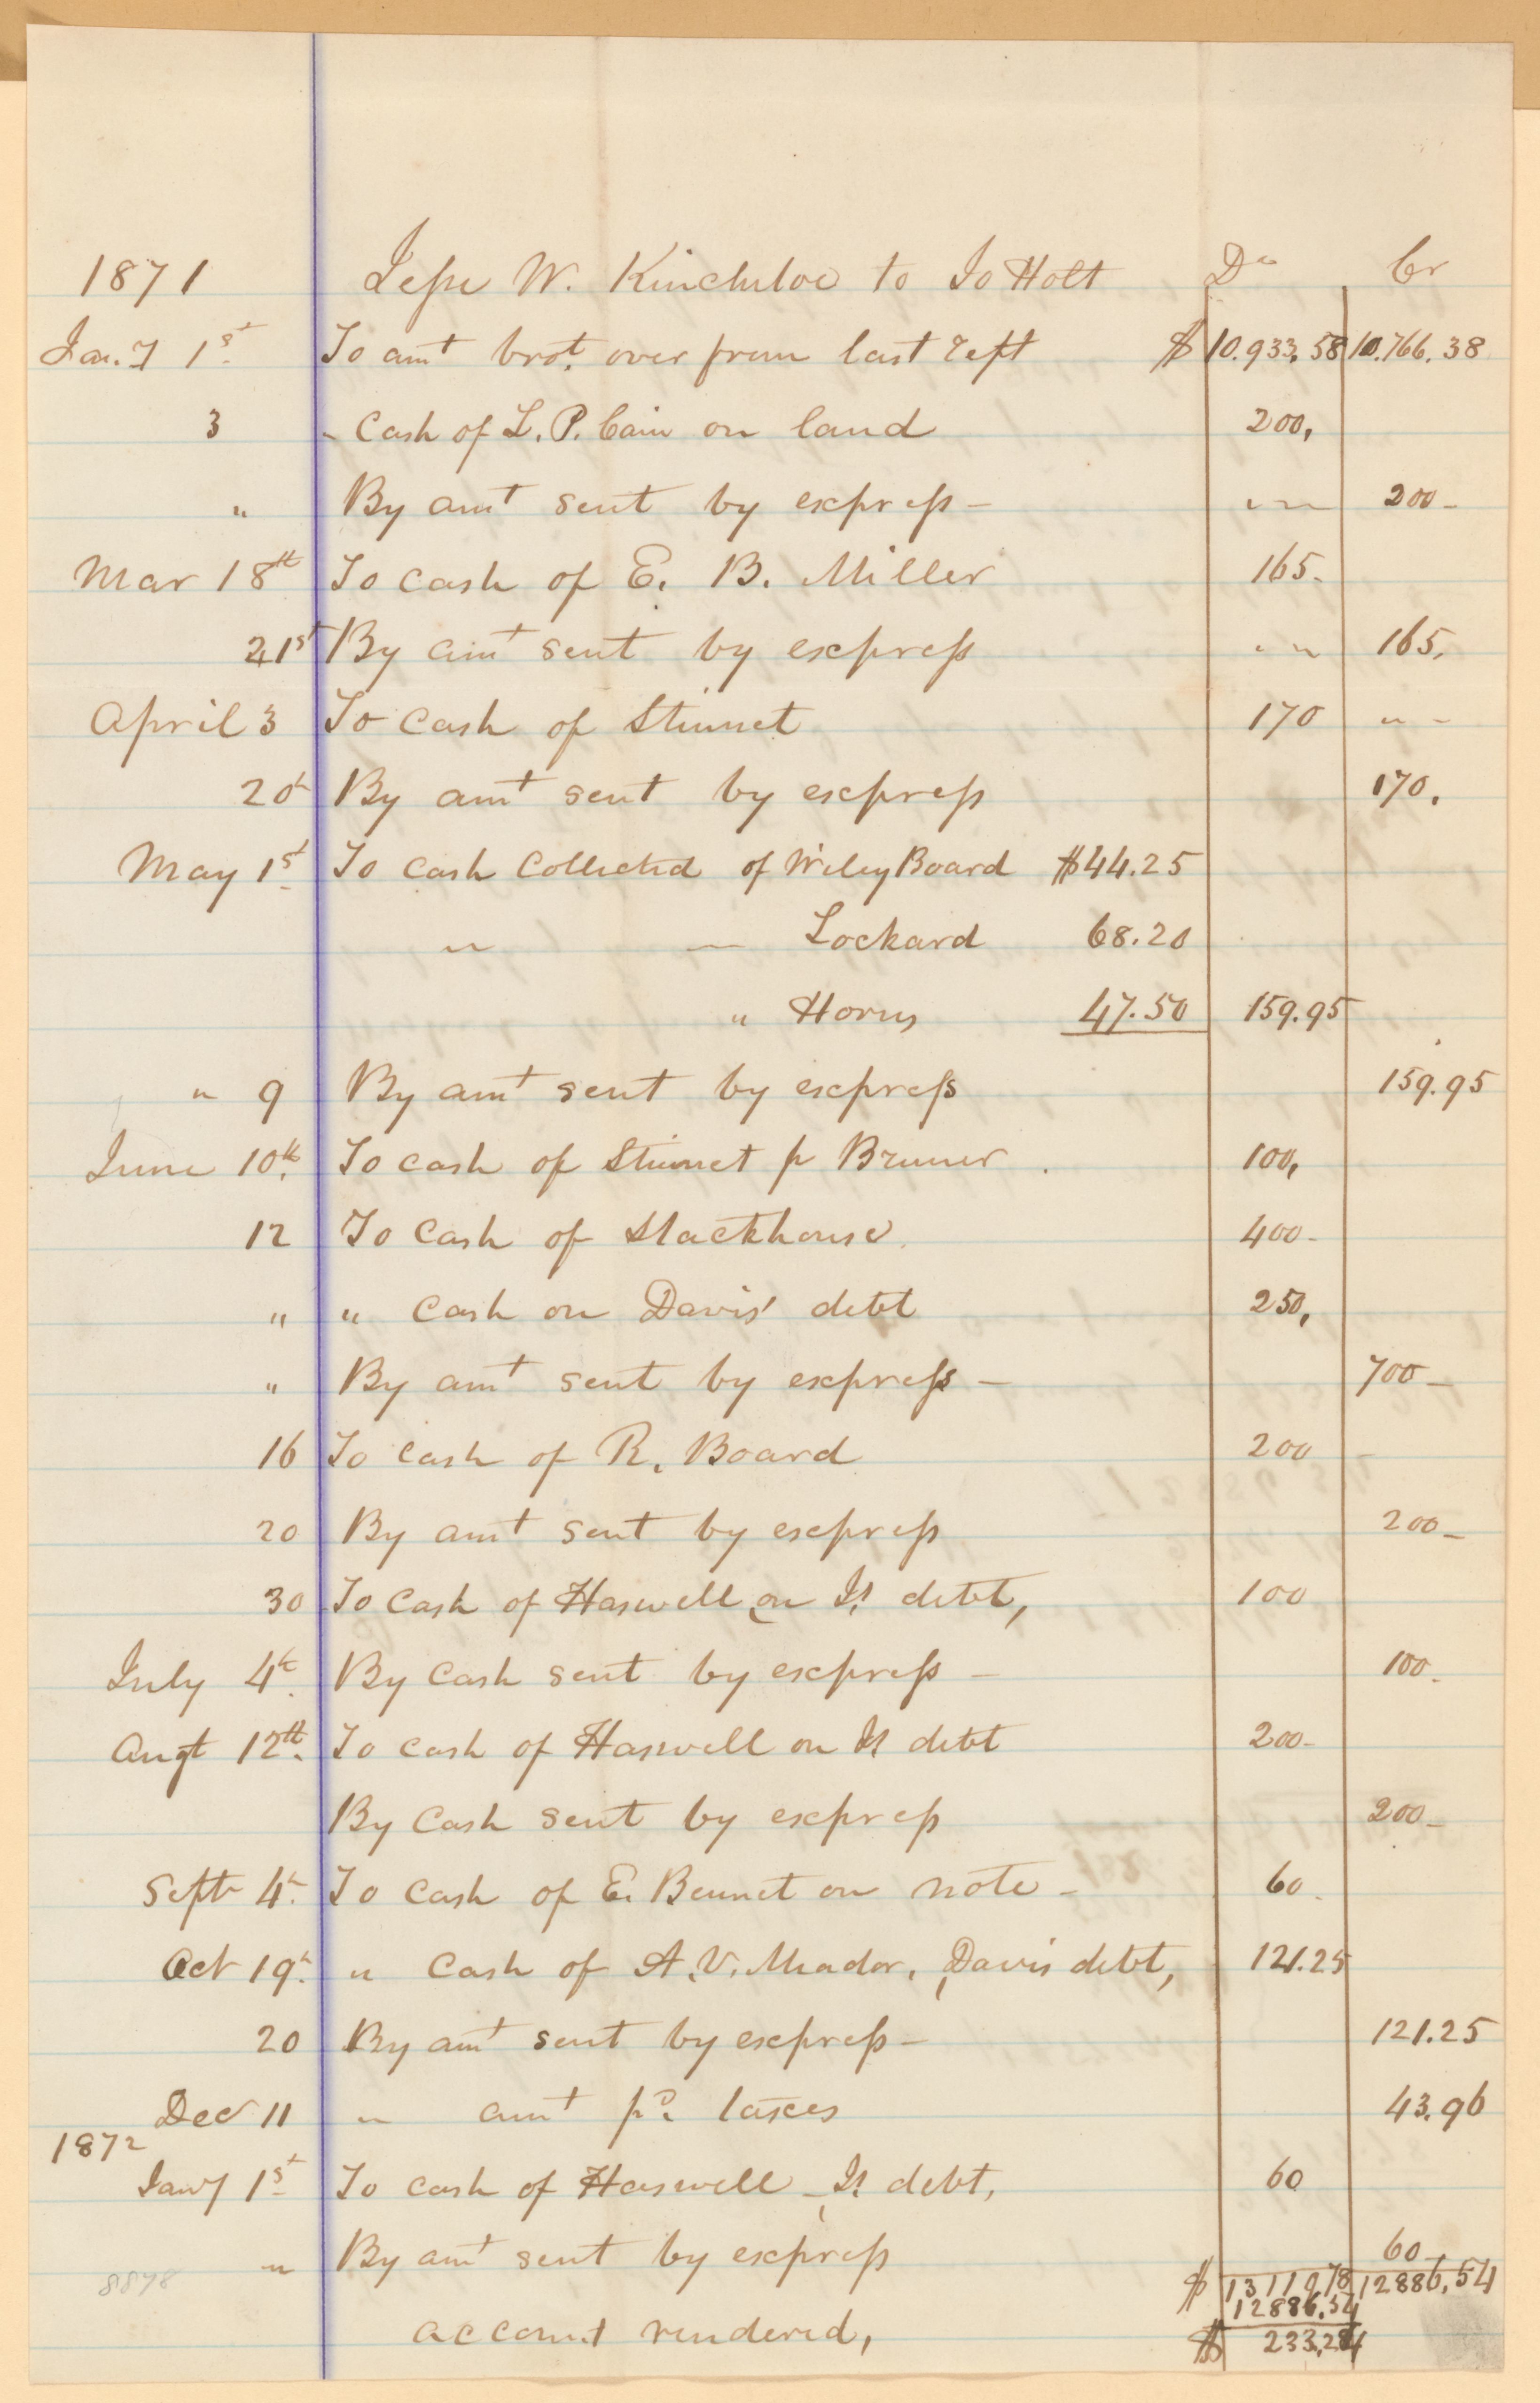 1871 Jesse W. Kincheloe to Jo Holt Dr Cr
Jany 1st To amt brot. over from last rept $10.933.58 10.766.38
3 " Cash of L. P. Cain on land 200,
" By amt sent by express - " " 200 -
Mar 18th To cash of E. B. Miller 165.
21st By amt sent by express " " 165.
April 3 To cash of Stinnet 170 " "
20th By amt sent by express 170.
May 1st To cash collected of Wiley Board $44.25
" " Lockard 68.20
" Horns 47.50 159.95
" 9 By amt sent by express 159.95
June 10th To cash of Stinnet p Bruner 100,
12 To cash of Stackhouse 400 -
" " cash on Davis' debt 250,
" By amt sent by express - 700 -
16 To cash of R. Board 200 -
20 By amt sent by express 200 -
30 To cash of Haswell on debt, 100
July 4th By cash sent by express - 100.
Augt 12th To cash of Haswell on debt 200 -
By cash sent by express 200 -
Sept 4th To cash of E. Bennet on note - 60.
Oct 19th " cash of A. V. Meador, Davis debt, 121.25
20 By amt sent by express - 121.25
Dec 11 " amt pd. taxes 43.96
1872
Jany 1st To cash of Haswell debt, 60
" By amt sent by express 60 -
8878 $ 13119,78 12886,54
12886,54
account rendered, $ 233,24